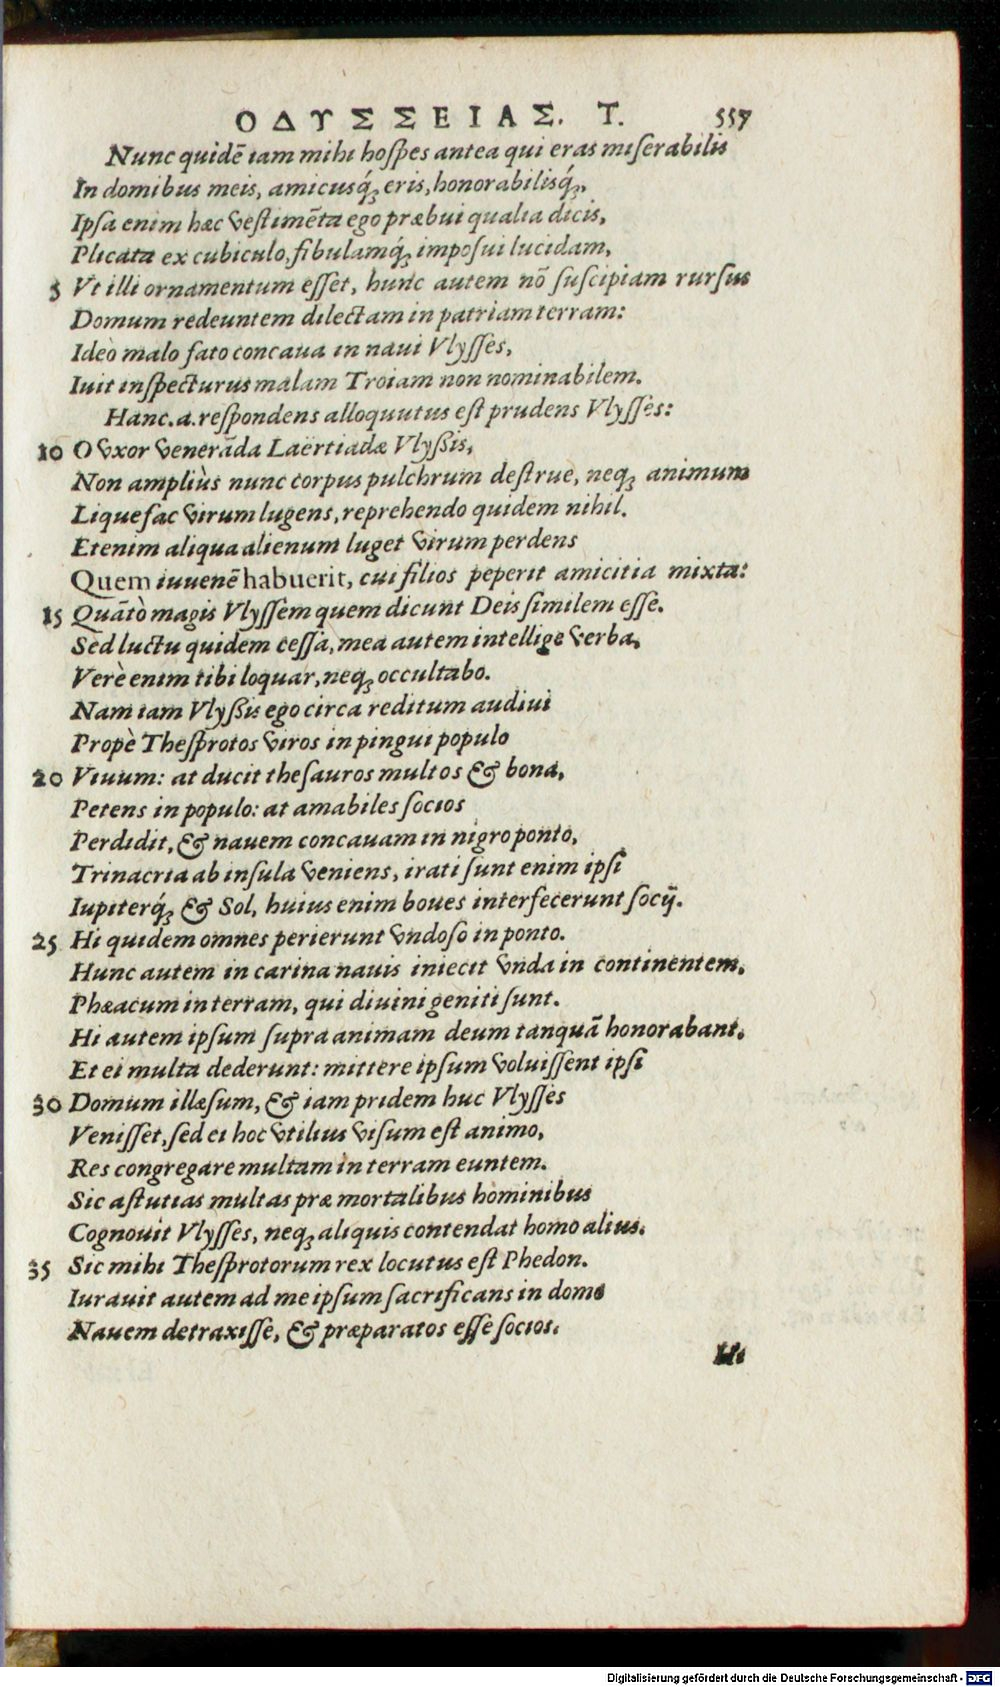 ΟΔΥΣΣΕΙΑΣ. Τ. 557
Nunc quidē iam mihi hoſpes antea qui eras miſerabilis
In domibus meis, amicusq́ꝫ eris, honorabilisq́ꝫ,
Ipſa enim hæc veſtimēta ego præbui qualia dicis,
Plicata ex cubiculo, fibulamq́ꝫ impoſui lucidam,
5 Vt illi ornamentum eſſet, hunc autem nō ſuſcipiam rurſus
Domum redeuntem dilectam in patriam terram:
Ideò malo fato concaua in naui Vlyſſes,
Iuit inſpecturus malam Troiam non nominabilem.
Hanc.a.reſpondens alloquutus eſt prudens Vlyſſes:
10 O vxor venerāda Laërtiadæ Vlyßis,
Non ampliùs nunc corpus pulchrum deſtrue, neqꝫ animum
Liquefac virum lugens, reprehendo quidem nihil.
Etenim aliqua alienum luget virum perdens
Quem iuuenē habuerit, cui filios peperit amicitia mixta:
15 Quātò magis Vlyſſem quem dicunt Deis ſimilem eſſe.
Sed luctu quidem ceſſa, mea autem intellige verba,
Verè enim tibi loquar, neqꝫ occultabo.
Nam iam Vlyßis ego circa reditum audiui
Propè Theſprotos viros in pingui populo
20 Viuum: at ducit theſauros multos & bona,
Petens in populo: at amabiles ſocios
Perdidit, & nauem concauam in nigro ponto,
Trinacria ab inſula veniens, irati ſunt enim ipſi
Iupiterq́ꝫ & Sol, huius enim boues interfecerunt ſocij.
25 Hi quidem omnes perierunt vndoſo in ponto.
Hunc autem in carina nauis iniecit vnda in continentem,
Phæacum in terram, qui diuini geniti ſunt.
Hi autem ipſum ſupra animam deum tanquā honorabant,
Et ei multa dederunt: mittere ipſum voluiſſent ipſi
30 Domum illæſum, & iam pridem huc Vlyſſes
Veniſſet, ſed ei hoc vtilius viſum eſt animo,
Res congregare multam in terram euntem.
Sic aſtutias multas præ mortalibus hominibus
Cognouit Vlyſſes, neqꝫ aliquis contendat homo alius.
35 Sic mihi Theſprotorum rex locutus eſt Phedon.
Iurauit autem ad me ipſum ſacrificans in domo
Nauem detraxiſſe, & præparatos eſſe ſocios.
Hi
Digitalisierung gefördert durch die Deutsche Forschungsgemeinschaft - DFG